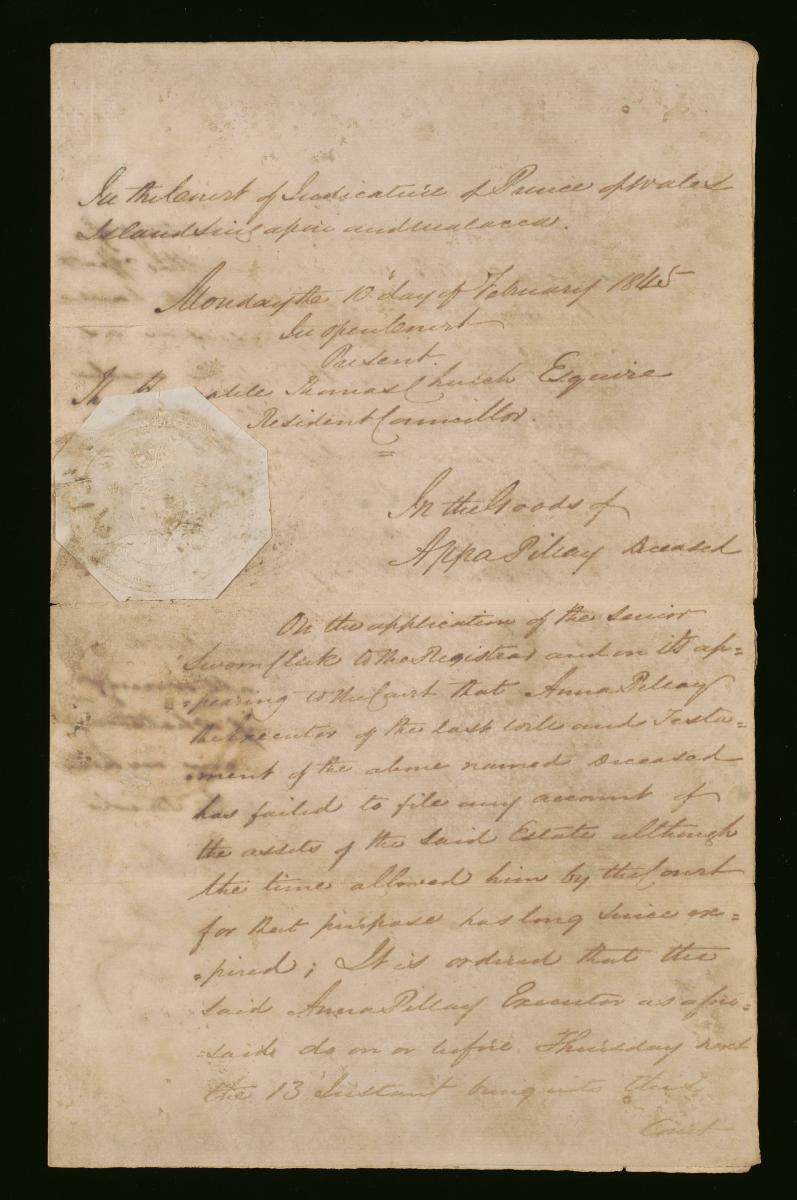 In the Court of Judicature of Prince of Wales
Island Singapore and Malacca.
Monday the 10th day of February 1845
In open Court
Present.
The Thomas Church Esquire
Resident Councillor.
In the Goods of
Appa Pillay Deceased
On the application of the Senior
Sworn Clerk to the Registrar and on its ap=
=pearing to the Court that Anna Pillay
the Executor of the last Will and Testa=
=ment of the above named Deceased
has failed to file any account of
the assets of the said Estate although
the time allowed him by the Court
for that purpose has long since ex=
=pired; It is ordered that the
said Anna Pillay Executor as afore=
=said do on or before Thursday next
the 13 Instant bring into this
Court